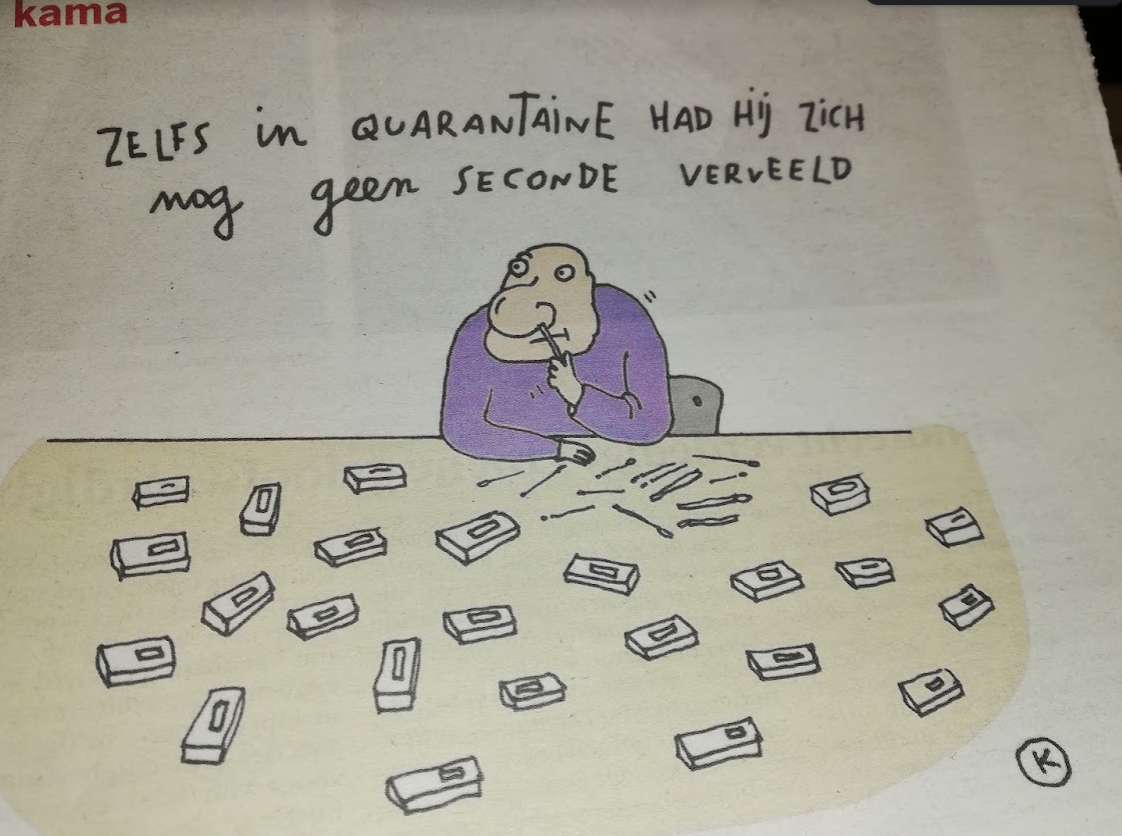 kama
ZELFS in QUARANTAINE HAD Hij ZiCH
nog geen SECONDE VERVEELD
K